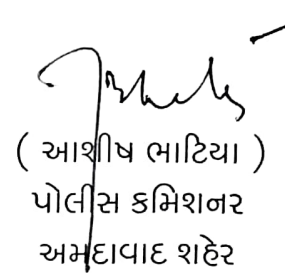 ( આશીષ ભાટિયા )
પોલીસ કમિશનર
અમદાવાદ શહેર